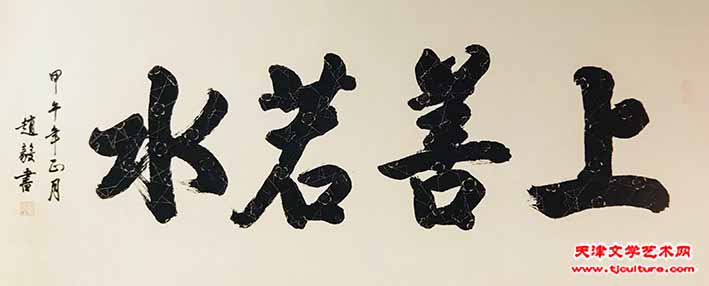 上善若水
甲午年正月
趙毅書
天津文学艺术网
www.tjculture.com